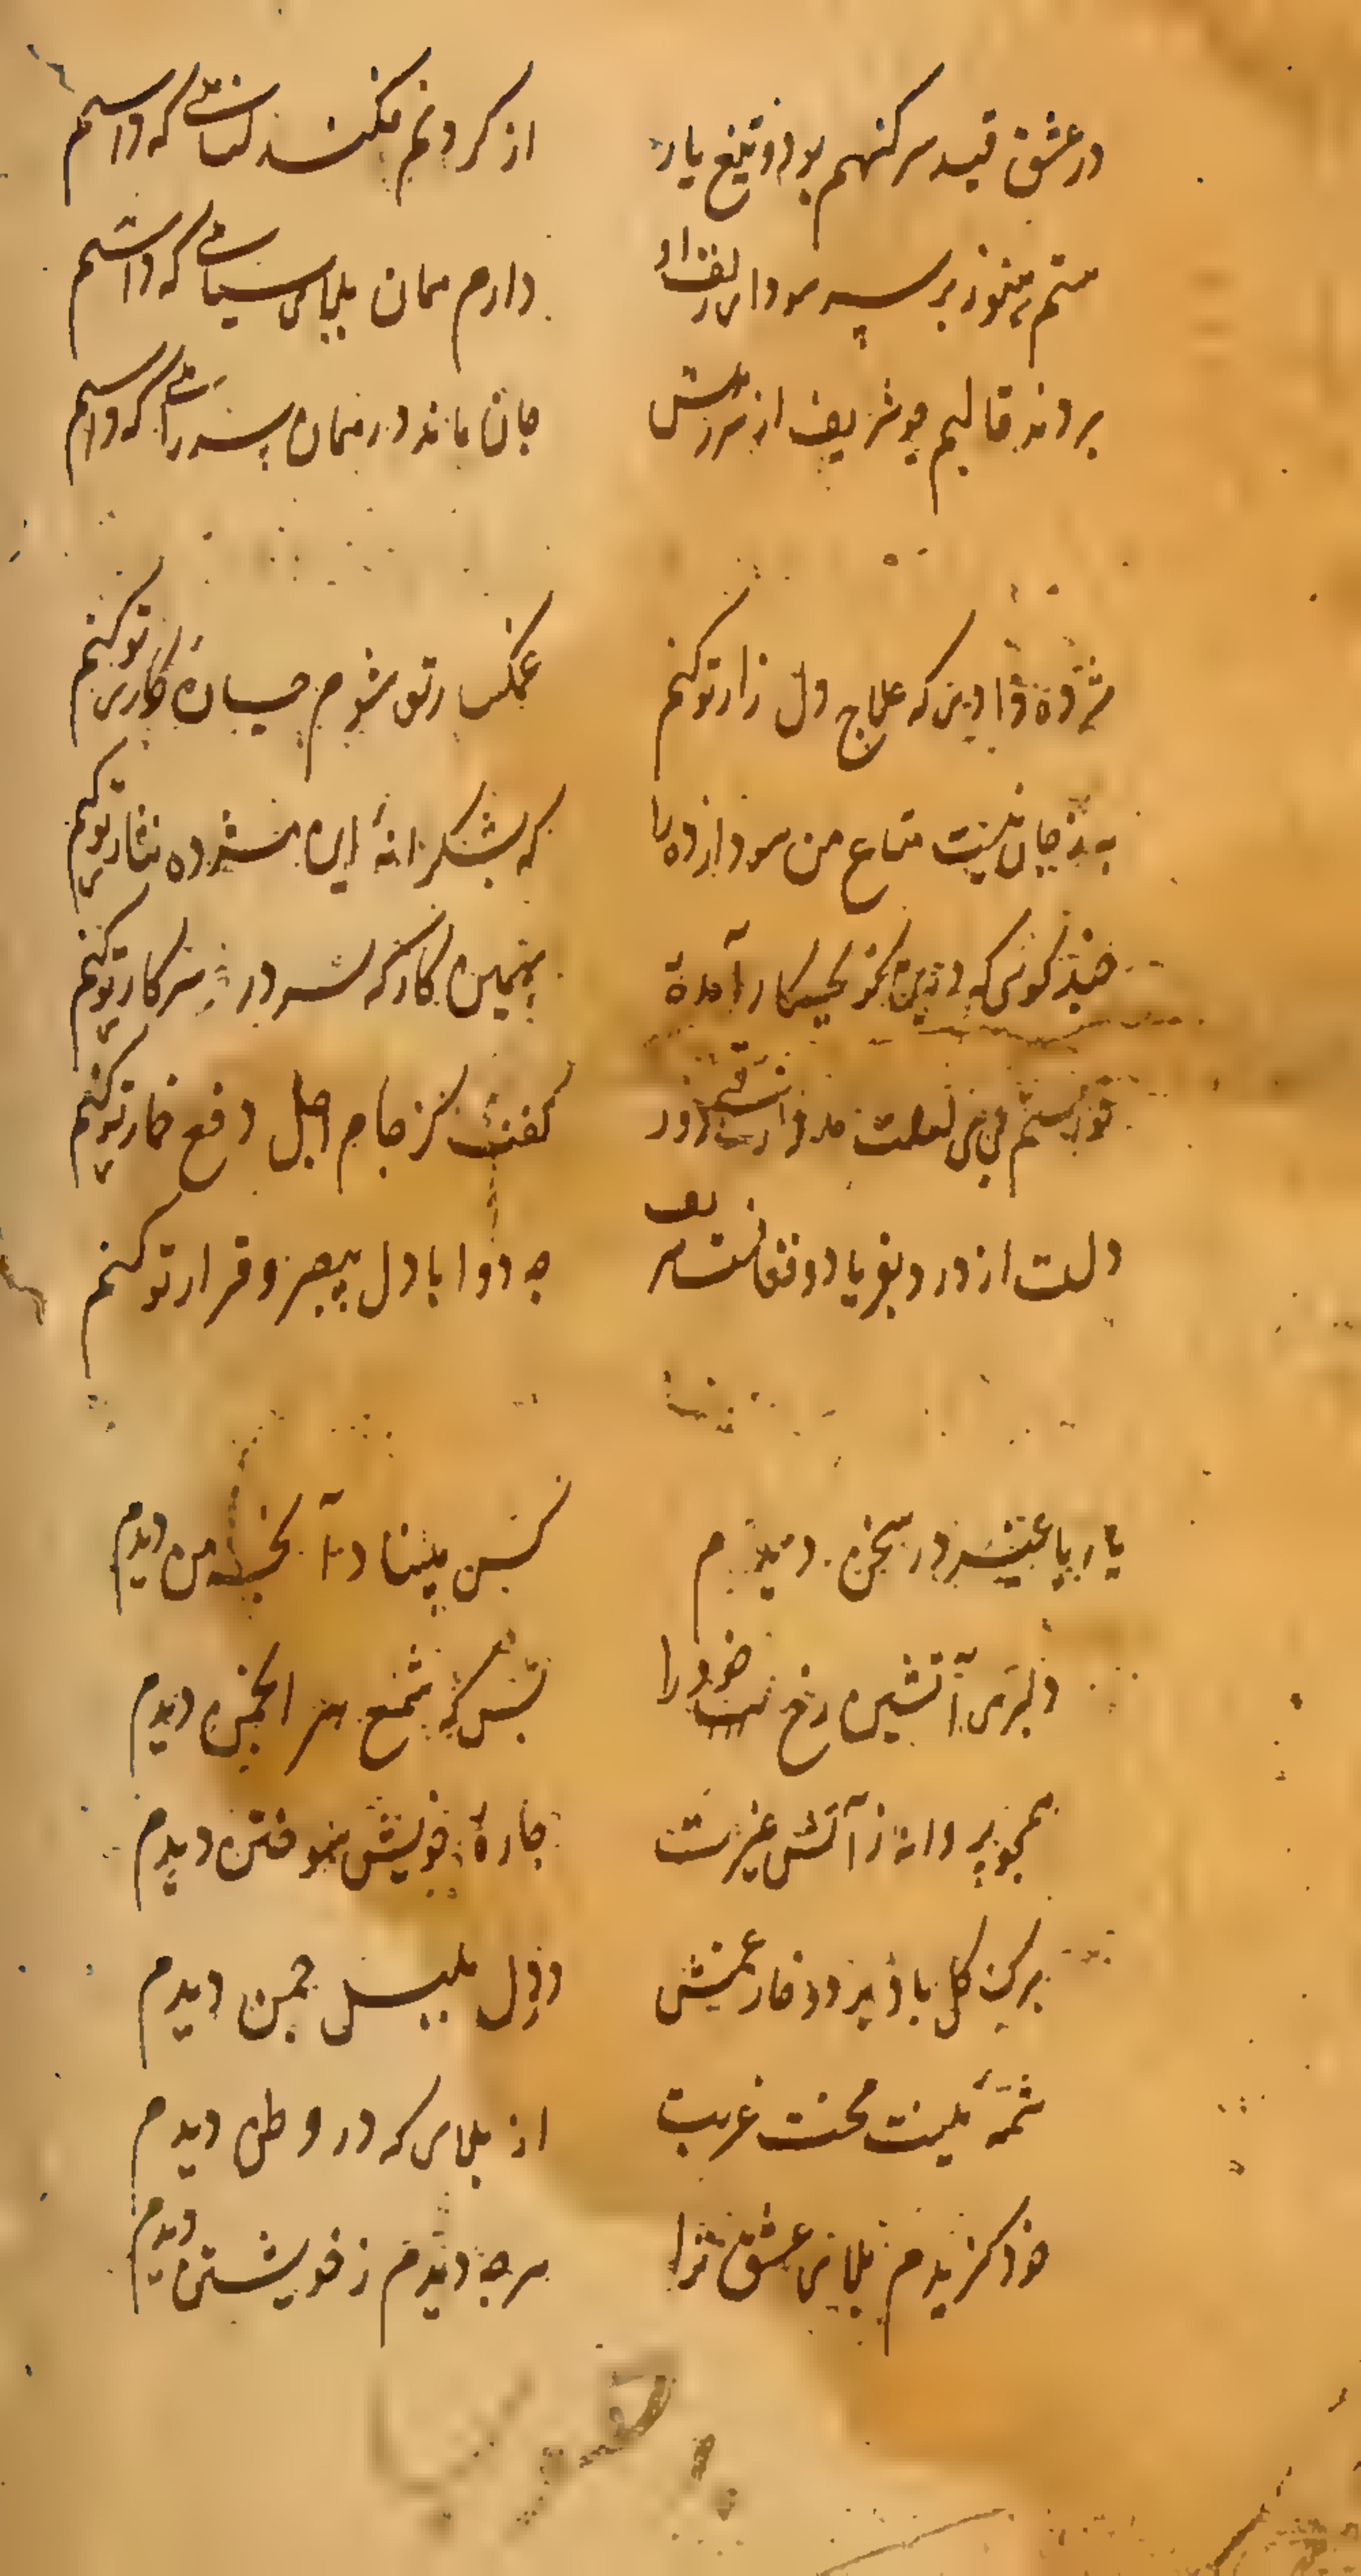 در عشق قید سرکشیم بود و تیغ یار از گردنم فکند گناهی که داشتم
هنوز بر سر سودای زلف او دارم همان پلاس سیاهی که داشتم
بردند قالبم چو شریف از درش جان ماند در همان سر راهی که داشتم
مژده دادی که علاج دل زار تو کنم غمگسار تو شوم چاره کار تو کنم
بجز جان نیست متاع من سودازده را که بشکرانهٔ این مژده نثار تو کنم
چند گوئی که درین کو بچه کار آمدهٔ بهمین کار که سر در سر کار تو کنم
لعلت گفت کز جام اجل دفع خمار تو کنم
دلت از درد بفریاد و فغانست شریف چه دوا با دل بیصبر و قرار تو کنم
یار با غیر در سخن دیدم کس مبیناد آنچه من دیدم
دلبری آتشین رخ خود را بس که شمع هر انجمن دیدم
همچو پروانه ز آتش غیرت چارهٔ خویش سوختن دیدم
برگ گل باد برد و خار غمش در دل بلبل چمن دیدم
شمهٔ نیست محنت غربت از بلای که در وطن دیدم
خود گزیدم بلای عشق ترا هرچه دیدم ز خویشتن دیدم